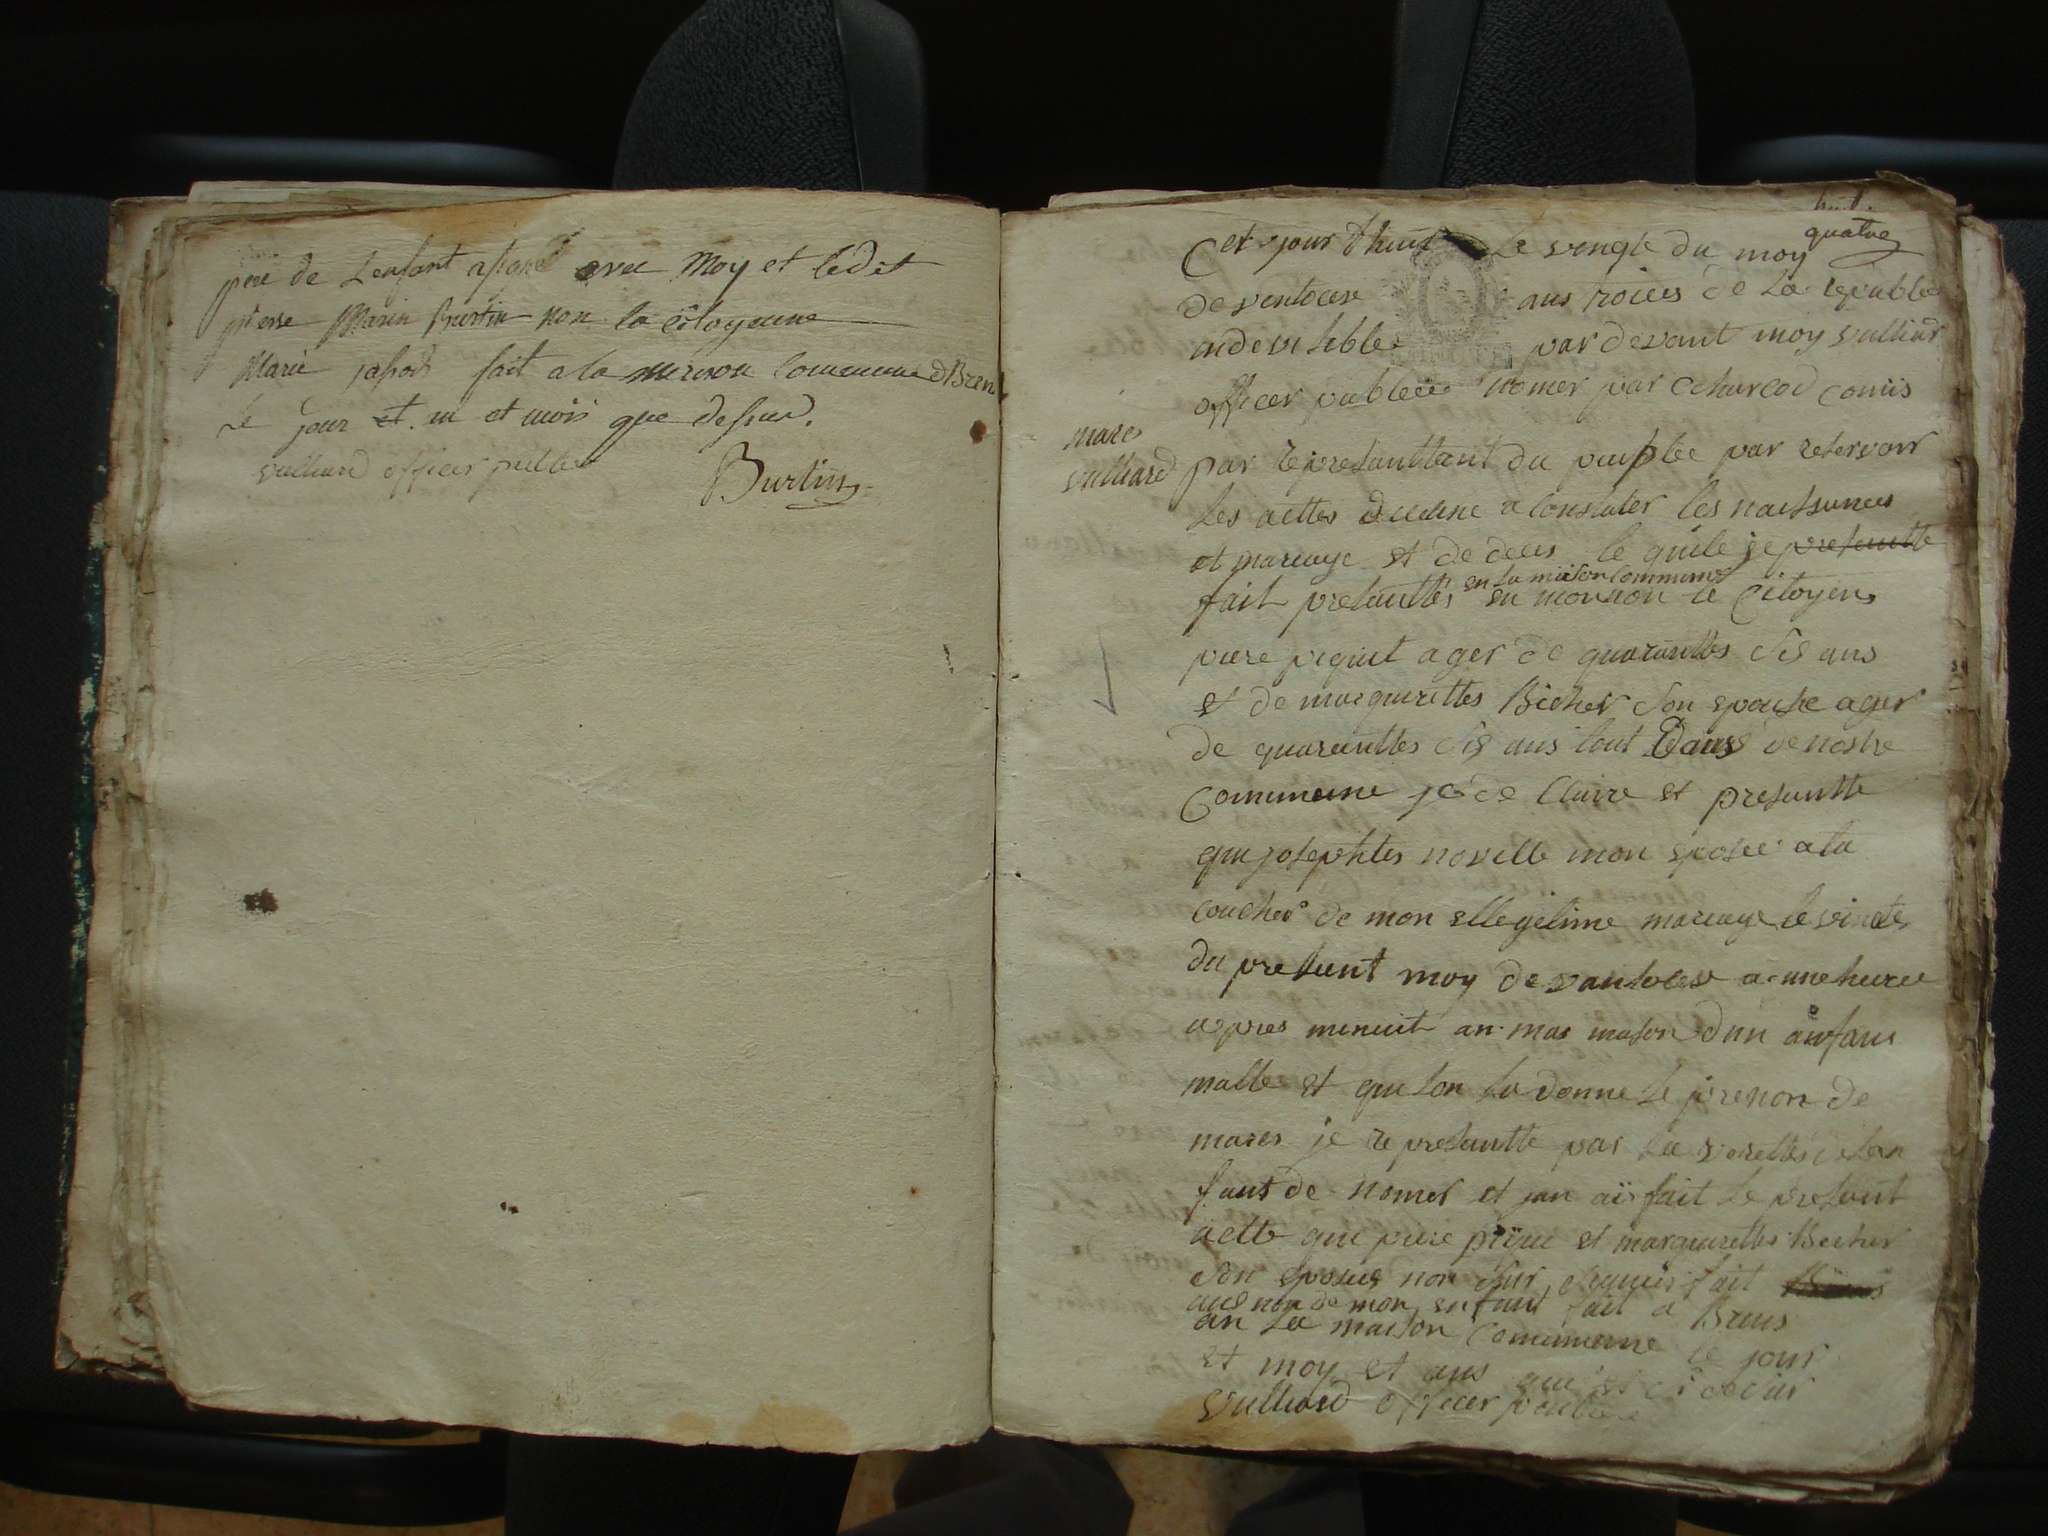 pere de Lenfant a signé avec moy et ledit
pierre Marin Burtin non la citoyenne
Marie fait a la maison commune
le jour et. m et mois que dessus.
vulliard officier public
Burtin
huit.
quatre
Cet jour d'huit Le vingte du moy
de ventoese ans troiees de La republie
indevisible par devant moy vulliard
officer publeee nomer par comiis
mares
vulliard
par representtant du peuplee par reservoir
Les acttes a Constater les naissances
et mariage et de deces le quele je presantte
en la maison commune
fait presanttes en monnon le Citoyens
piere piquet ager de quaranttes sis ans
et de marguerittes Bicher son epouse ager
de quaranttes sis ans tout Dans de nostre
Commeune je de Claire et presantte
que josephtes novelle mon eposee a la
coucher de mon ellegitime mariage le vinctes
du present moy de vantoese a une heure
apres menuit an mas mason dun anfans
malle et que lon lu donne le prenon de
mares je represantte par
fans de nomer et jan ai fait le presant
actte que piere et marguerittes Becher
son eposee non fait
aus non de mon enfant fait a Brens
an La maison Commeune le jour
et moy et ans que
vulliard officer